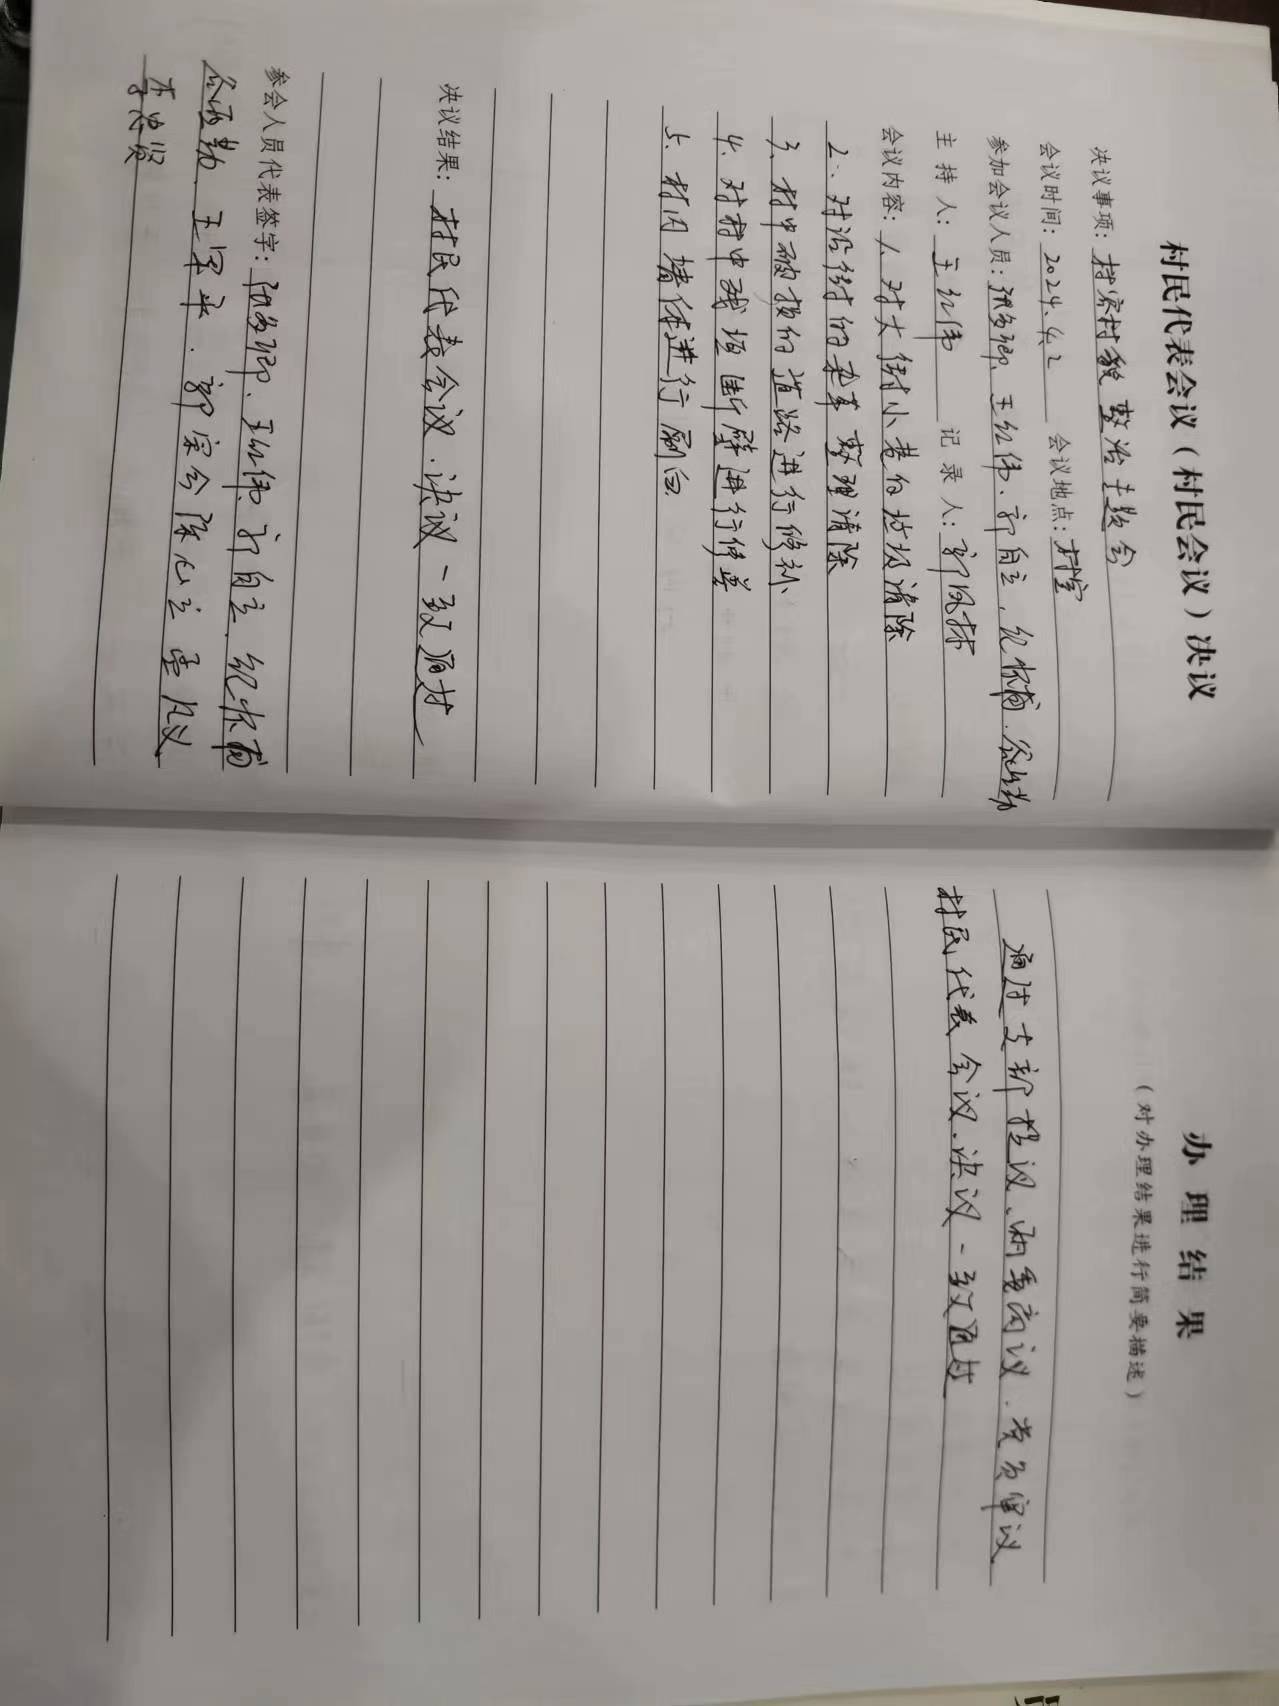 村民代表会议（村民会议）决议
决议事项：村容村貌整治主题会
会议时间：2024.4.2 会议地点：村室
参加会议人员：王红伟、郭自立、
主持人：王红伟 记录人：郭风林
会议内容：1、对大街小巷的垃圾清除
2、对沿街的杂草整理清除
3、村中破损的道路进行修补
4、对村中残垣断壁进行修葺
5、村内墙体进行刷白
决议结果：村民代表会议.决议一致通过
参会人员代表签字：王红伟 郭自立、
王军平、郭宗会
办理结果
（对办理结果进行简要描述）
通过支部提议、两委商议.党员审议
村民代表会议.决议一致通过